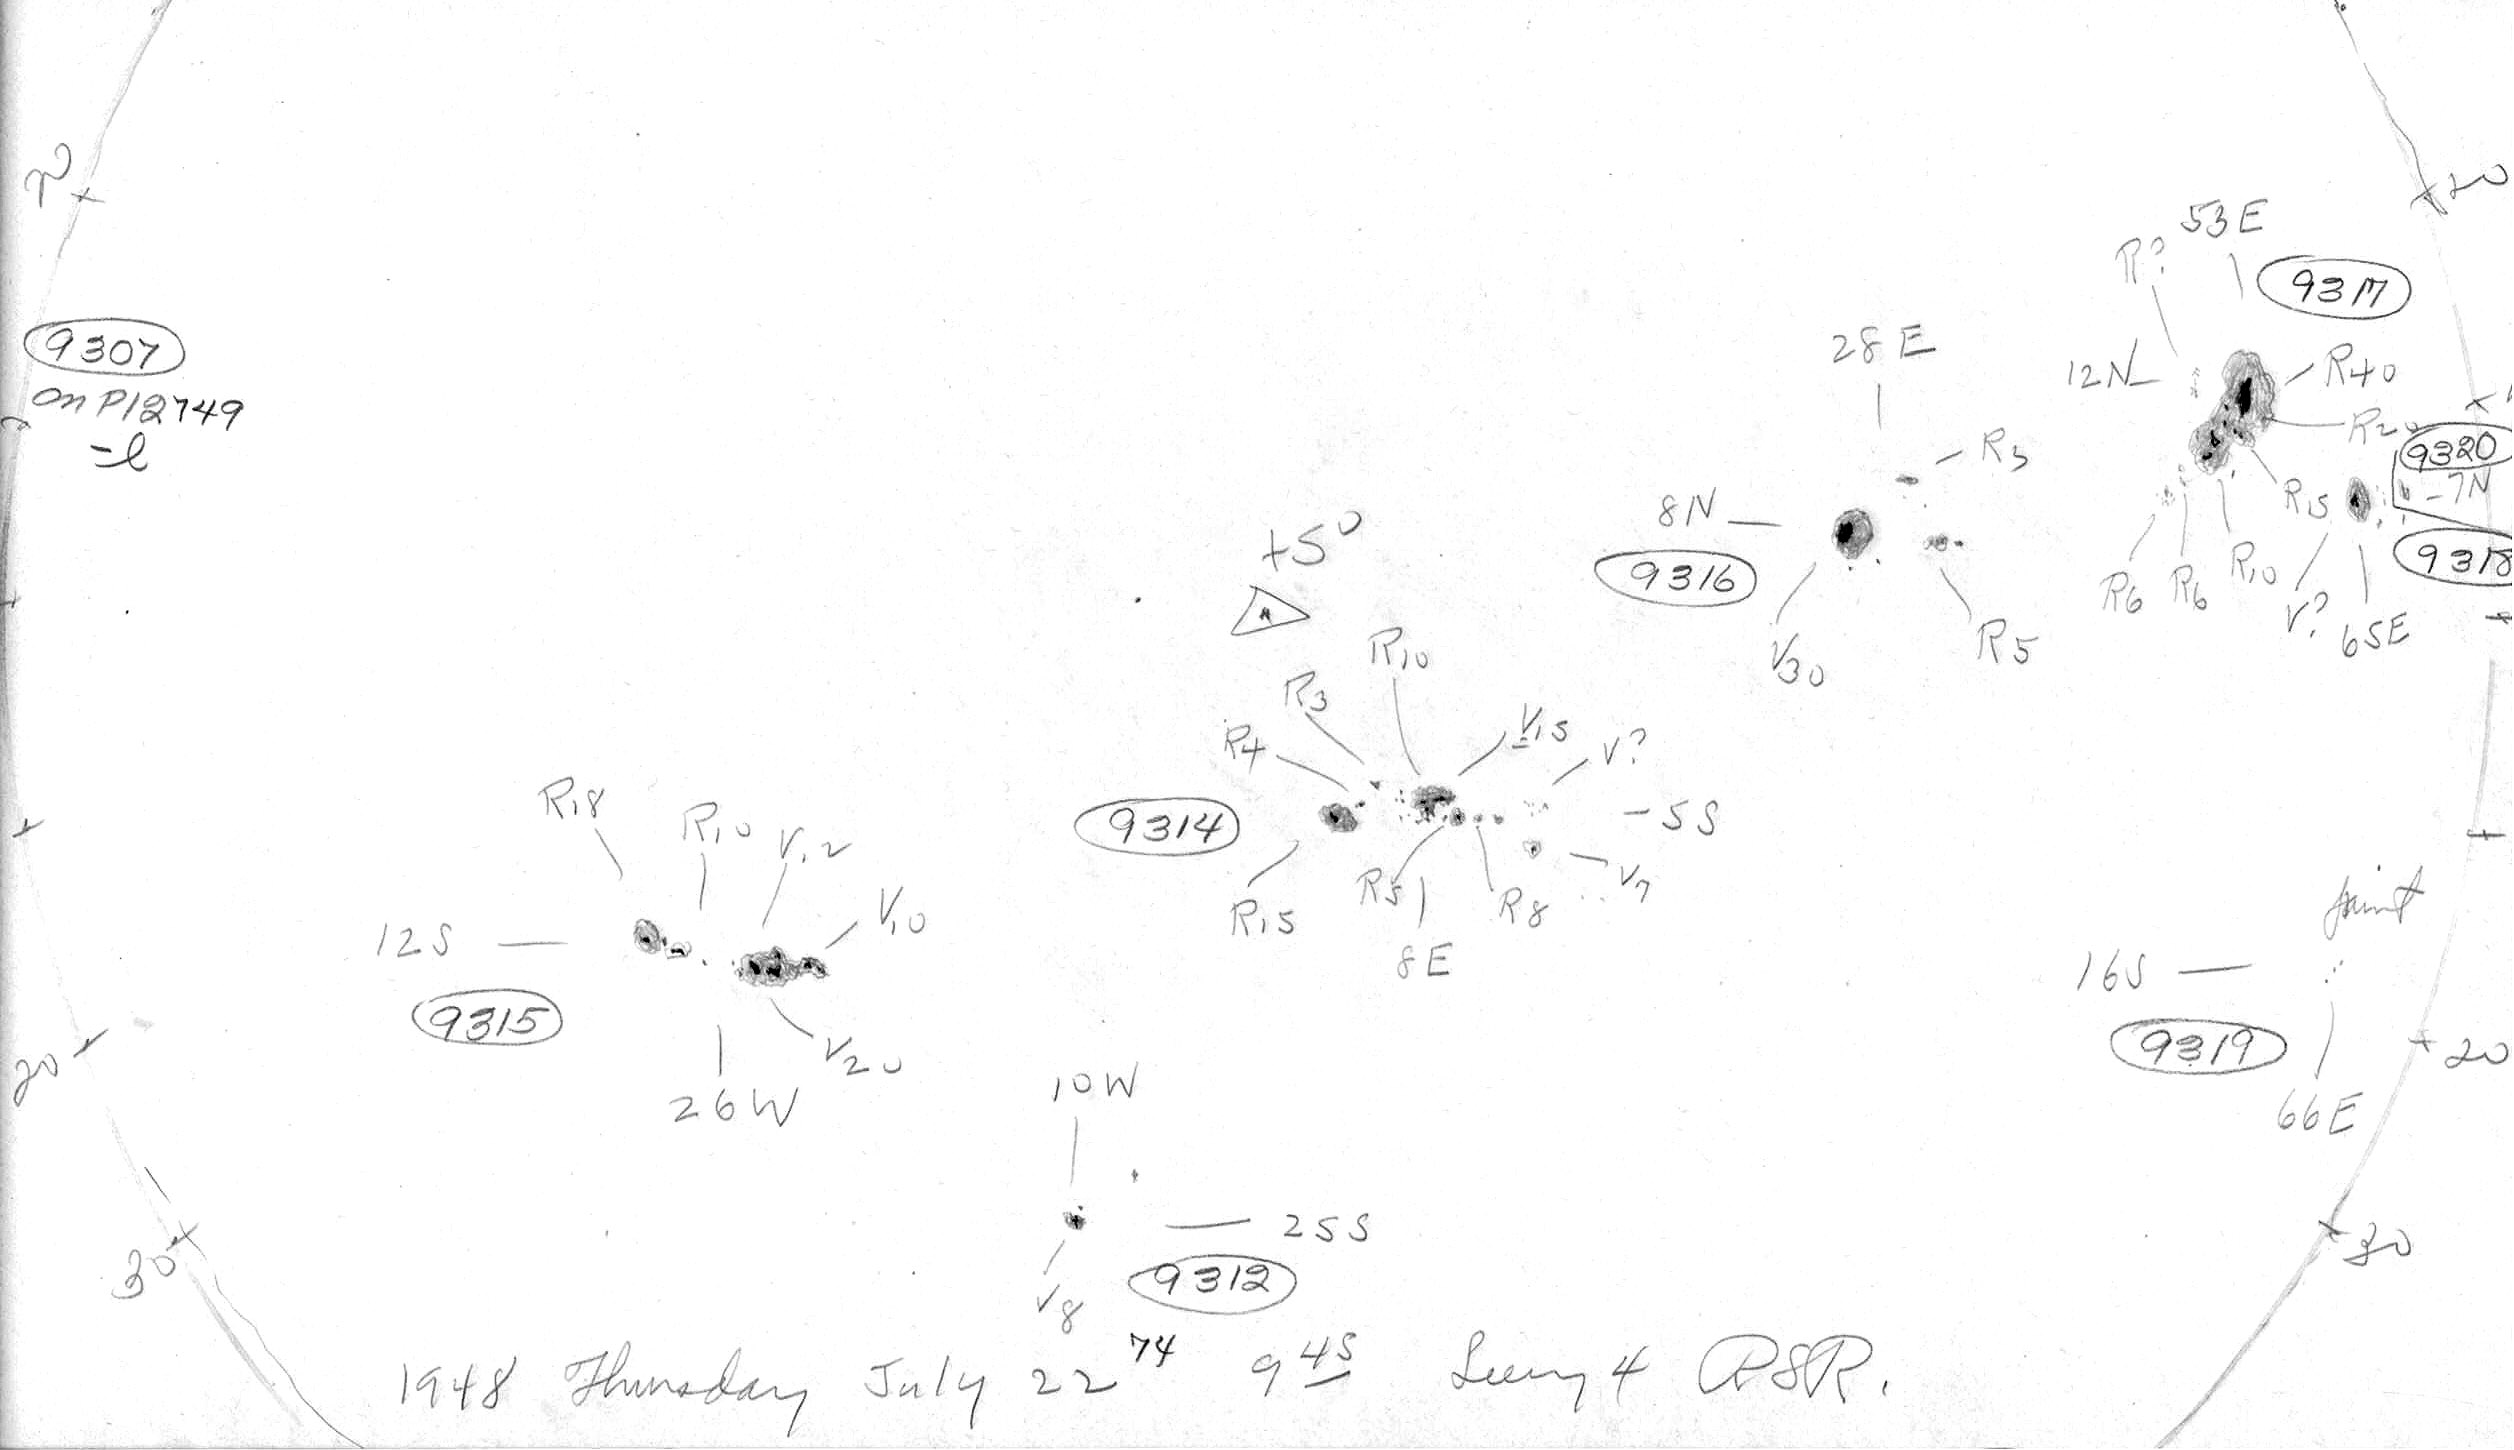 20
20
53E
R?
9317
9307
on P12749
-l
28E
12N
R40
R20
R3
9320
8N
-7N
R15
+5°
9316
9318
R6
R6
R10
V?
65E
R10
V30
R5
R3
V15
V?
R4
R18
R10
V12
9314
-5S
R15
R5
R8
V7
V10
faint
12S
8E
16S
9315
9319
20
V20
20
26W
10W
66E
25S
30
30
9312
V8
1948 Thursday July 22 74 9 45 Seeing 4 RSR.